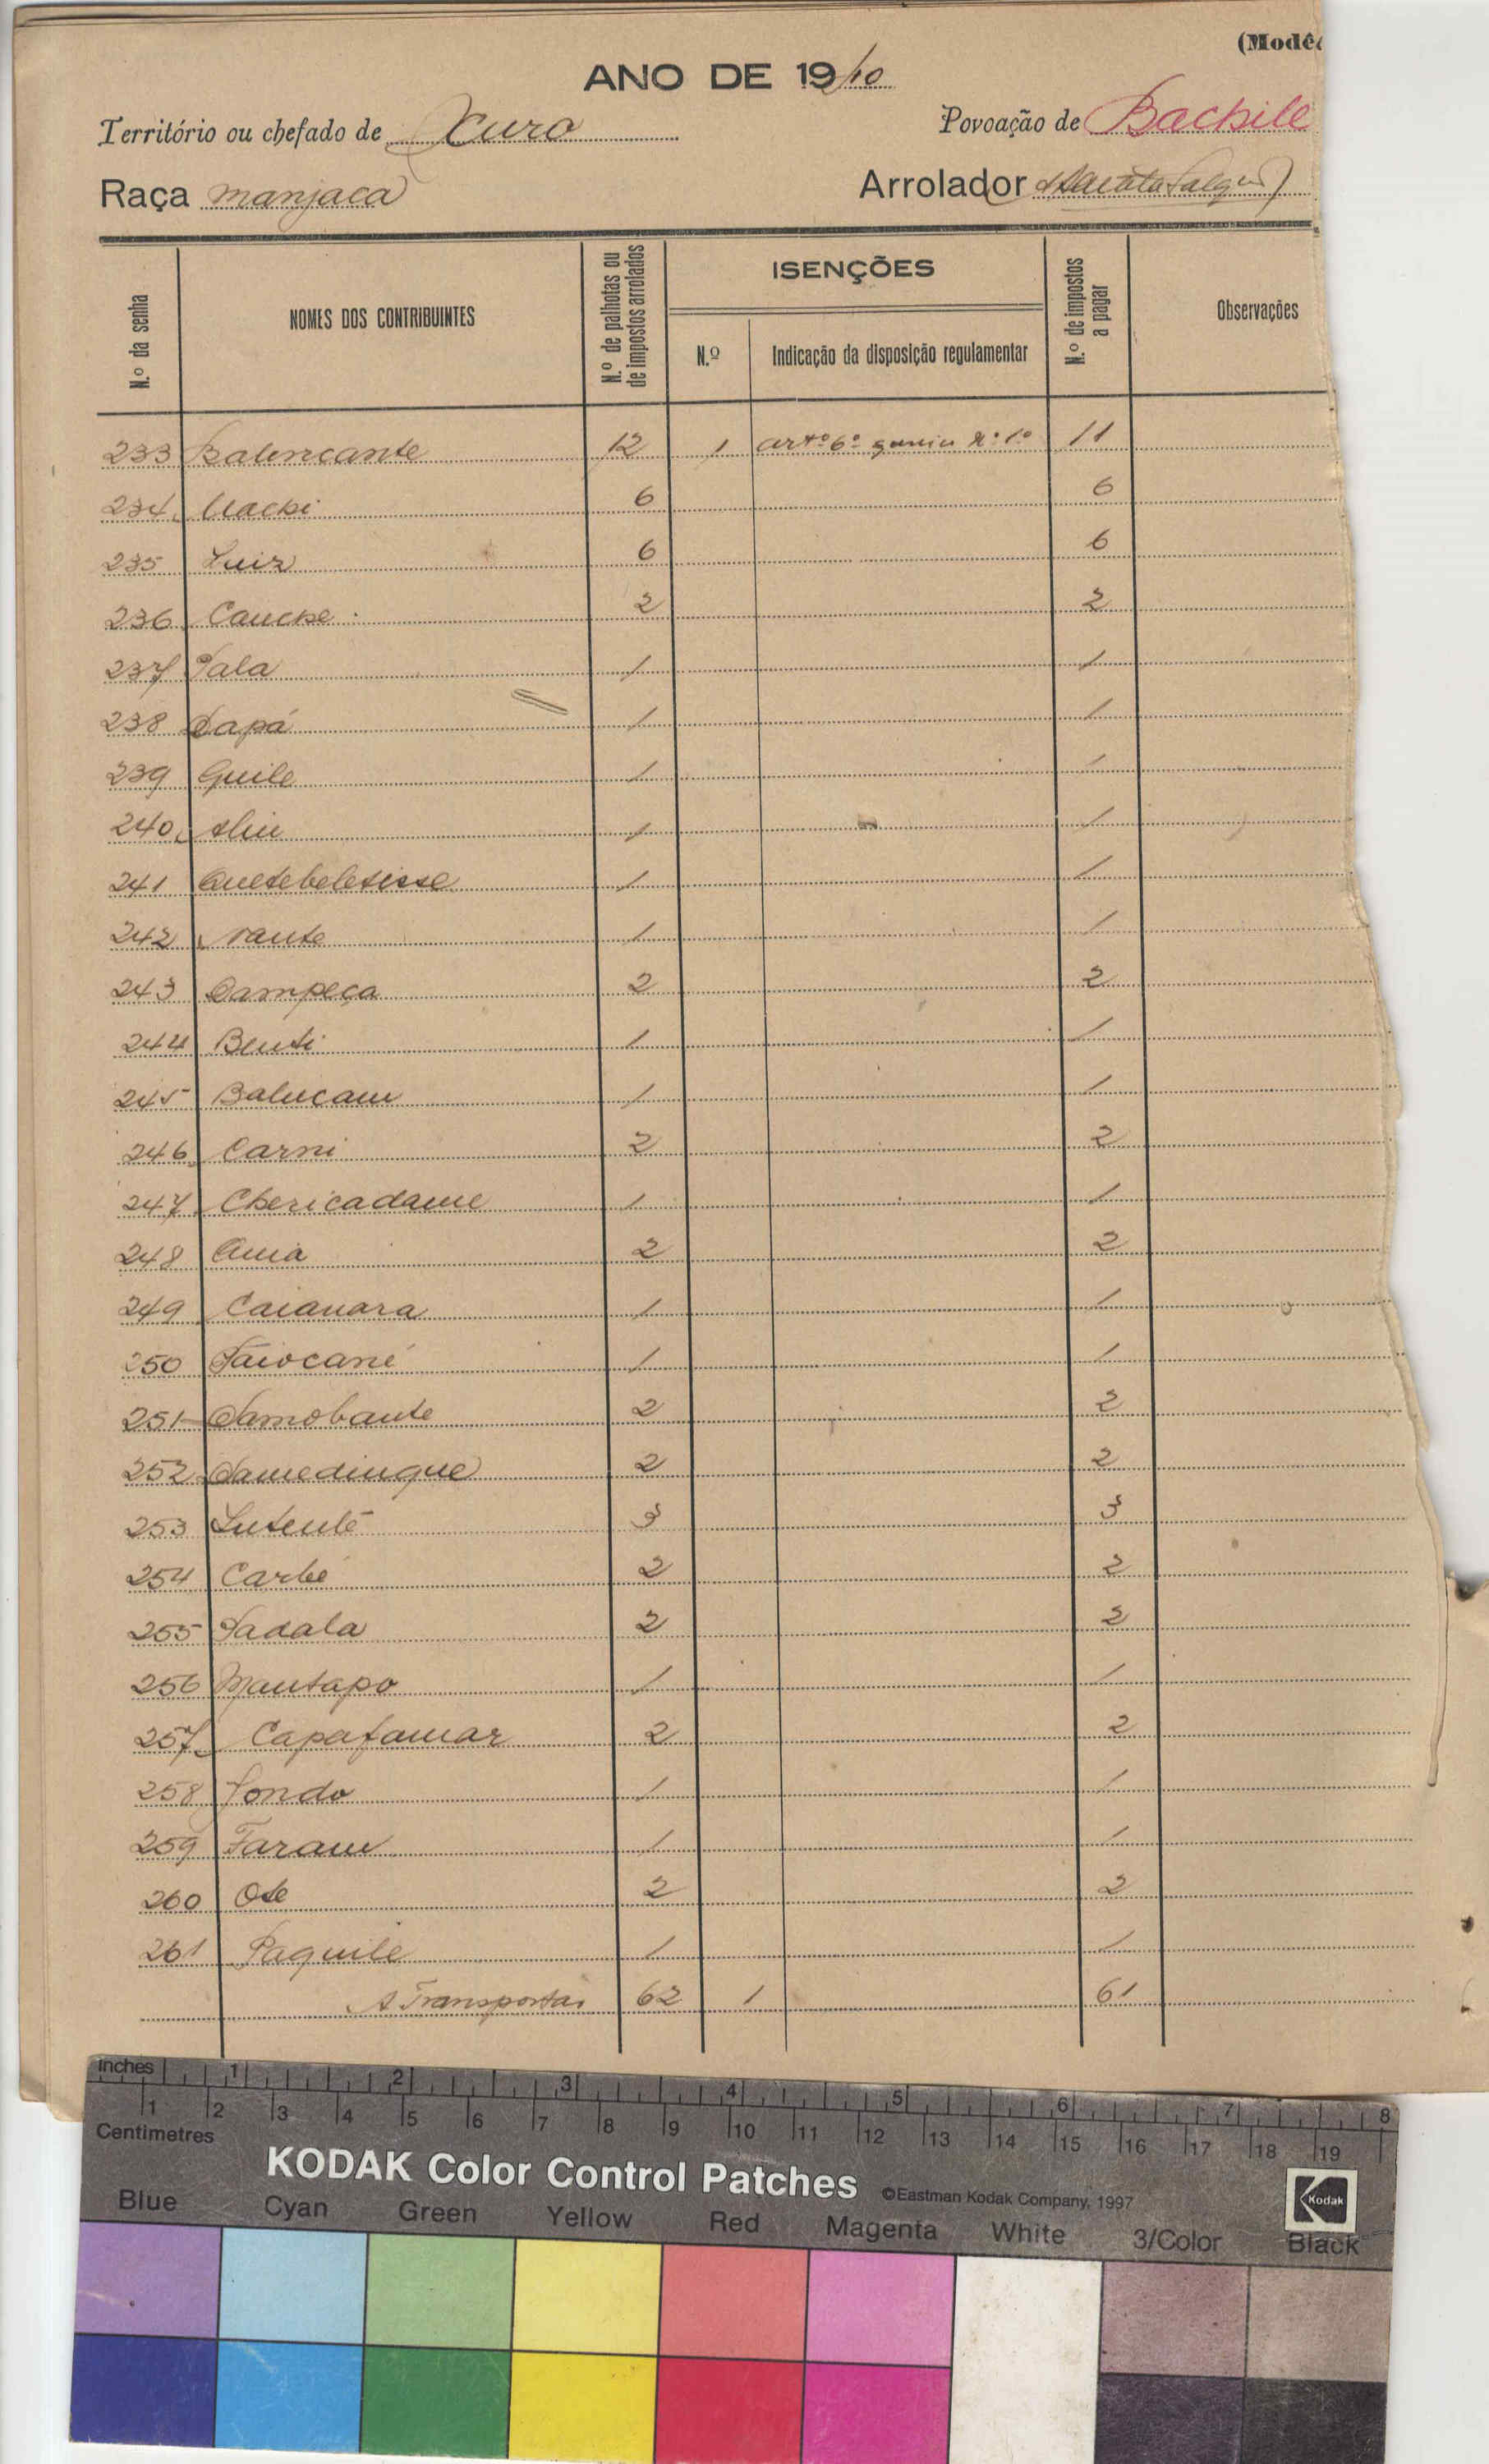 (Modê
ANO DE 1940
Território ou chefado de Xuro Povoação de Bachile
Raça manjaca Arrolador
N.º da senha NOMES DOS CONTRIBUINTES N.º de palhotas ou de impostos arrolados ISENÇÕES N.º de impostos a pagar Observações
N.º Indicação da disposição regulamentar
233 Balencante 12 1 artº 6º nº 1º 11
234 Uachi 6 6
235 Luiz 6 6
236 Cauche 2 2
237 Sala 1 1
238 Dapá 1 1
239 Guile 1 1
240 Aliu 1 1
241 Quetebeletisse 1 1
242 Naute 1 1
243 Dampeça 2 2
244 Benti 1 1
245 Balucam 1 1
246 Carni 2 2
247 Chericadame 1 1
248 2 2
249 Caianara 1 1
250 Saiocané 1 1
251 Samobante 2 2
252 Samedinque 2 2
253 Lutenté 3 3
254 Carbé 2 2
255 Sadala 2 2
256 Mantapo 1 1
257 Capafamar 2 2
258 Jondo 1 1
259 Faram 1 1
260 Ote 2 2
261 Paquile 1 1
A Transportar 62 1 61
inches 1 2 3 4 5 6 7 8
1 2 3 4 5 6 7 8 9 10 11 12 13 14 15 16 17 18 19
Centimetres
KODAK Color Control Patches ©Eastman Kodak Company, 1997 Kodak
Blue Cyan Green Yellow Red Magenta White 3/Color Black